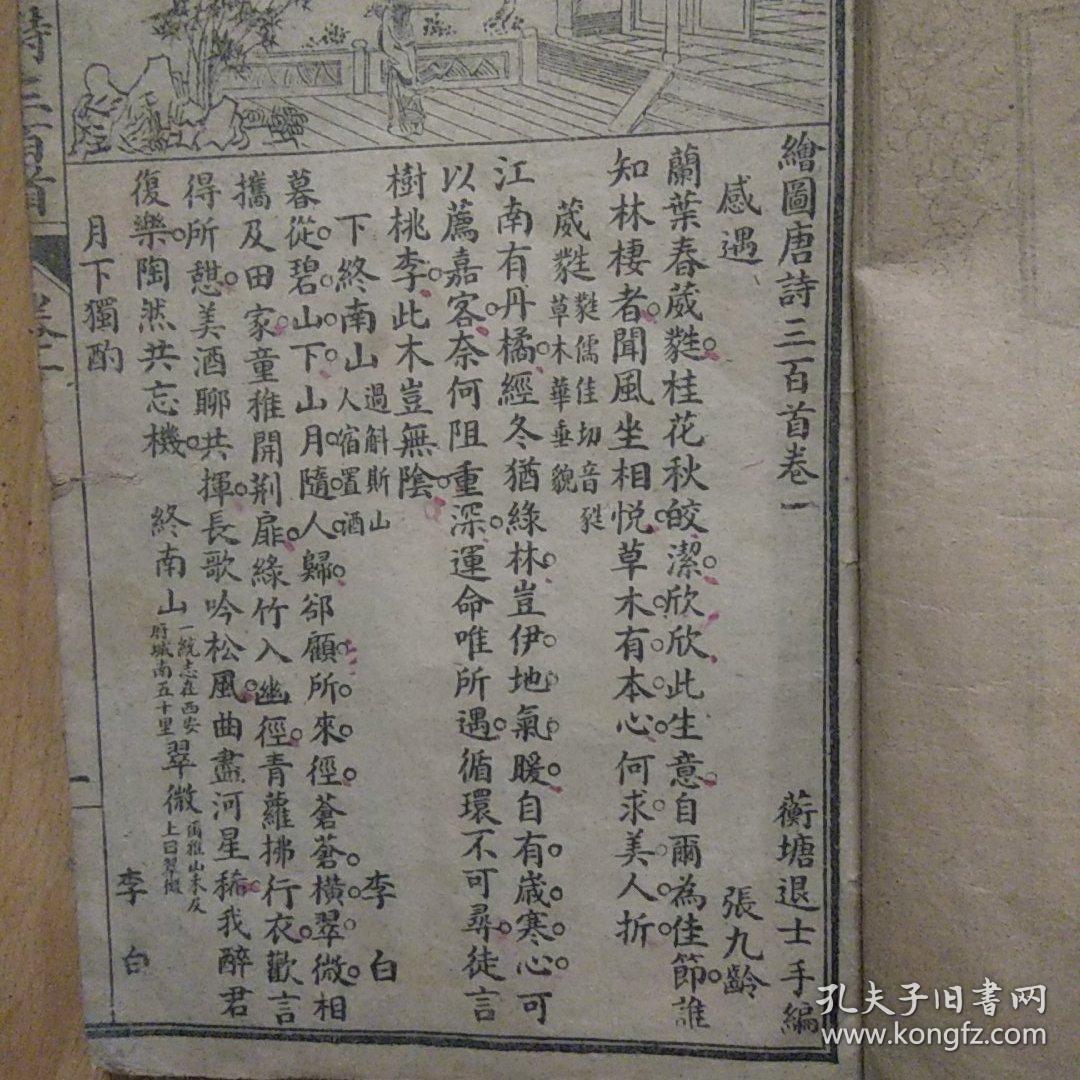 繪圖唐詩三百首卷一 蘅塘退士手編
感遇 張九齡
蘭葉春葳蕤桂花秋皎潔欣欣此生意自爾為佳節誰
知林棲者聞風坐相悅草木有本心何求美人折
葳蕤 蕤儒佳切音甤草木華垂貌
江南有丹橘經冬猶綠林豈伊地氣暖自有歲寒心可
以薦嘉客奈何阻重深運命唯所遇循環不可尋徒言
樹桃李此木豈無陰
下終南山過斛斯山人宿置酒 李白
暮從碧山下山月隨人歸卻顧所來徑蒼蒼橫翠微相
攜及田家童稚開荆扉綠竹入幽徑青蘿拂行衣歡言
得所憩美酒聊共揮長歌吟松風曲盡河星稀我醉君
復樂陶然共忘機 終南山 一統志在西安府城南五十里 翠微 爾雅山未及上曰翠微
月下獨酌 李白
詩三百首
卷一
一
孔夫子旧书网
www.kongfz.com